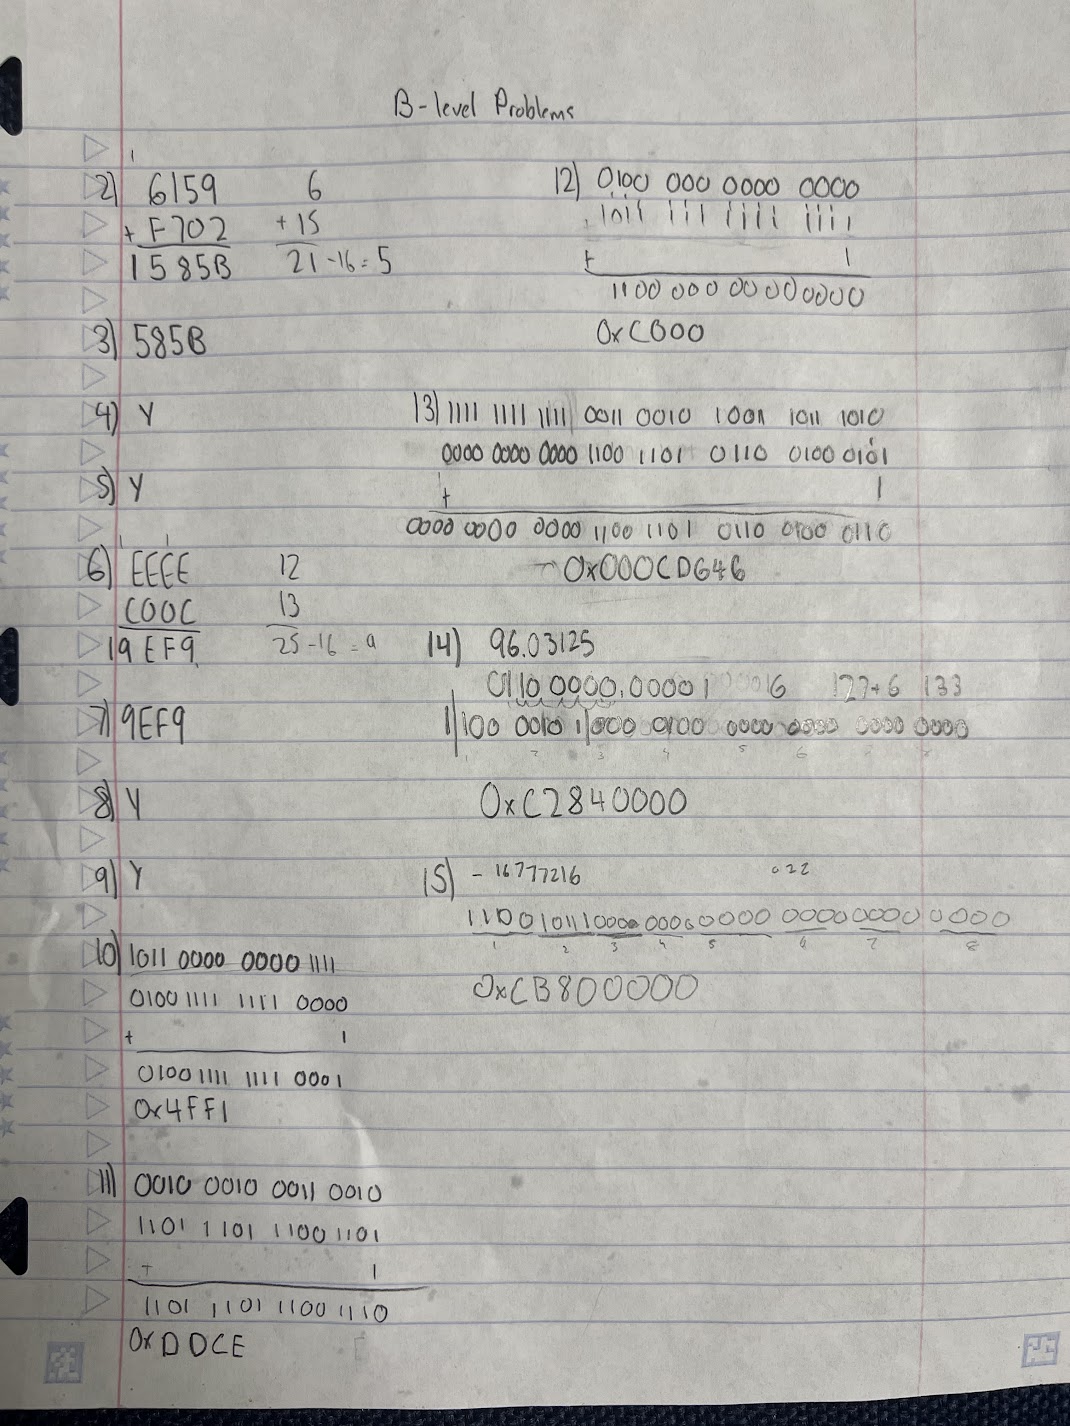 B-level Problems
1
2) 6159
+ F702
1585B
6
+ 15
21 - 16 = 5
3) 585B
4) Y
5) Y
1 1
6) EEEE
C00C
19EF9
12
13
25 - 16 = 9
7) 9EF9
8) Y
9) Y
10) 1011 0000 0000 1111
0100 1111 1111 0000
+ 1
0100 1111 1111 0001
0x4FF1
11) 0010 0010 0011 0010
1101 1101 1100 1101
+ 1
1101 1101 1100 1110
0xDDCE
12) 0100 000 0000 0000
1011 111 1111 1111
+ 1
1100 000 0000 0000
0xC000
13) 1111 1111 1111 0011 0010 1001 1011 1010
0000 0000 0000 1100 1101 0110 0100 0101
+ 1
0000 0000 0000 1100 1101 0110 0100 0110
0x000CD646
14) 96.03125
0110 0000.00001 6 127+6 133
1|100 0010 1|000 0100 0000 0000 0000 0000
0xC2840000
15) - 16777216
1100 1011 1000 0000 0000 0000 0000 0000
1 2 3 4 5 6 7 8
0xCB800000